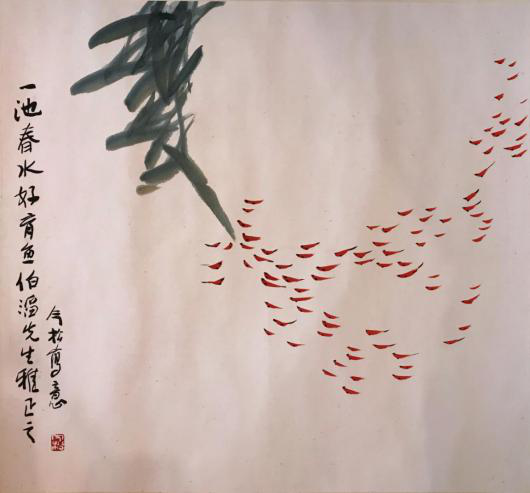 一池春水好育鱼伯滔先生雅正之
今松写意